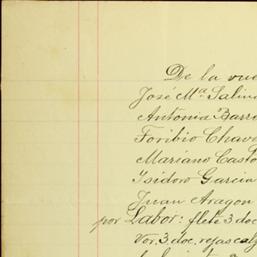 De la vue
José Mª Salin
Antonia Barr
Toribio Chave
Mariano Casto
Isidoro Garcia
Juan Aragon
por Labor: flete 3 doc
Vor. 3 doc. rejas calz